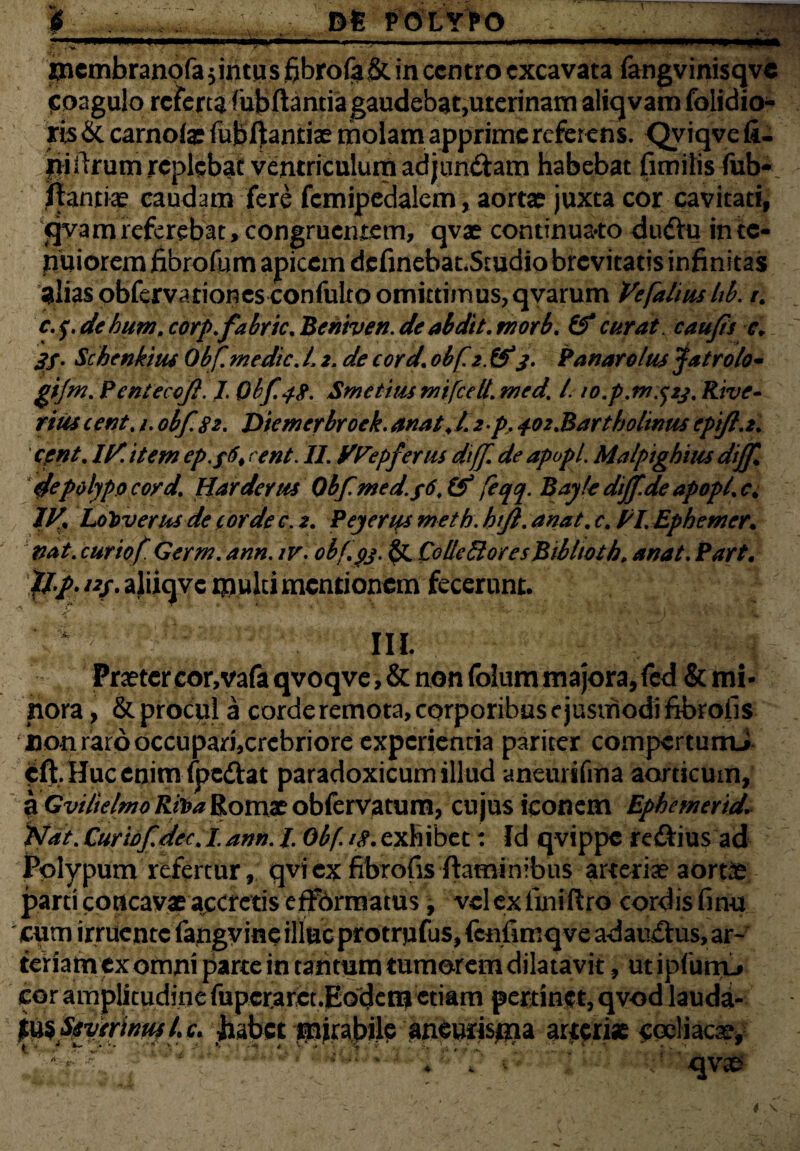 6 DE POLYPO
membranosa; intus fibrosa & in centro excavata sangvinisqve
coagulo referta substantia gaudebat, uterinam aliqvam solidio-
ris & carnosæ substantiæ molam apprime referens. Qviqve si-
nistrum replebat ventriculum adjunctam habebat similis sub-
stantiæ caudam fere semipedalem, aortæ juxta cor cavitati,
qvam referebat, congruentem, qvæ continuato ductu in te-
nuiorem fibrosum apicem desinebat. Studio brevitatis infinitas
alias observationes consulto omittimus, qvarum Vesalius lib. 1.
c. 5. de hum. corp. fabric. Beniven. de abdit. morb. & curat. causis c.
35. Schenkius Obs. medic. l. 2. de cord. obs. 2. & 3. Panarolus Jatrolo-
gism. Pentecost. I. Obs. 48. Smetius miscell. med. l. 10. p. m. 523. Rive-
rius cent. 1. obs. 82. Diemerbroek. anat. l. 2. p. 402. Bartholinus epist. 2.
cent. IV. item ep. 56. cent. II. VVepferus diss. de apopl. Malpighius diss.
de polypo cord. Harderus Obs. med. 56. & seqq. Bayle diss. de apopl. c.
IV. Lovverus de corde c. 2. Peyerus meth. hist. anat. c. VI. Ephemer.
nat. curios. Germ. ann. IV. obs. 93. & Collectores Biblioth. anat. Part.
II. p. 125. aliiqve multi mentionem fecerunt.
III.
Præter cor, vasa qvoqve, & non solum majora, sed & mi-
nora, & procul à corde remota, corporibus ejusmodi fibrosis
non rarò occupari, crebriore experientia pariter compertum
est. Huc enim spectat paradoxicum illud aneurisma aorticum,
à Gvilielmo Riva Romæ observatum, cujus iconem Ephemerid.
Nat. Curios. dec. I. ann. I. Obs. 18. exhibet: Id qvippe rectius ad
Polypum refertur, qvi ex fibrosis staminibus arteriæ aortæ
parti concavæ accretis efformatus, vel ex sinistro cordis sinu
cum irruente sangvine illuc protrusus, sensimqve adauctus, ar-
teriam ex omni parte in tantum tumorem dilatavit, ut ipsum
cor amplitudine superaret. Eodem etiam pertinet, qvod lauda-
tus Severinus l. c. habet mirabile aneurisma arteriæ cœliacæ,
qvæ